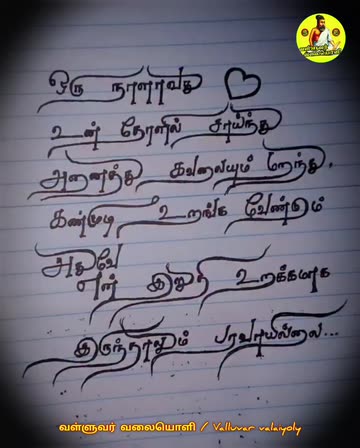 வள்ளுவர் வலையொளி
ஒரு நாளாவது
உன் தோளில் சாய்ந்து
அனைத்து கவலையும் மறந்து.
கண்மூடி உறங்க வேண்டும்
அதுவே
என் இறுதி உறக்கமாக
இருந்தாலும் பரவாயில்லை...
வள்ளுவர் வலையொளி / Valluvar valaiyoly